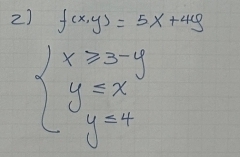 2) f(x,y) = 5x+4y
x ≥ 3-y
y ≤ x
y ≤ 4